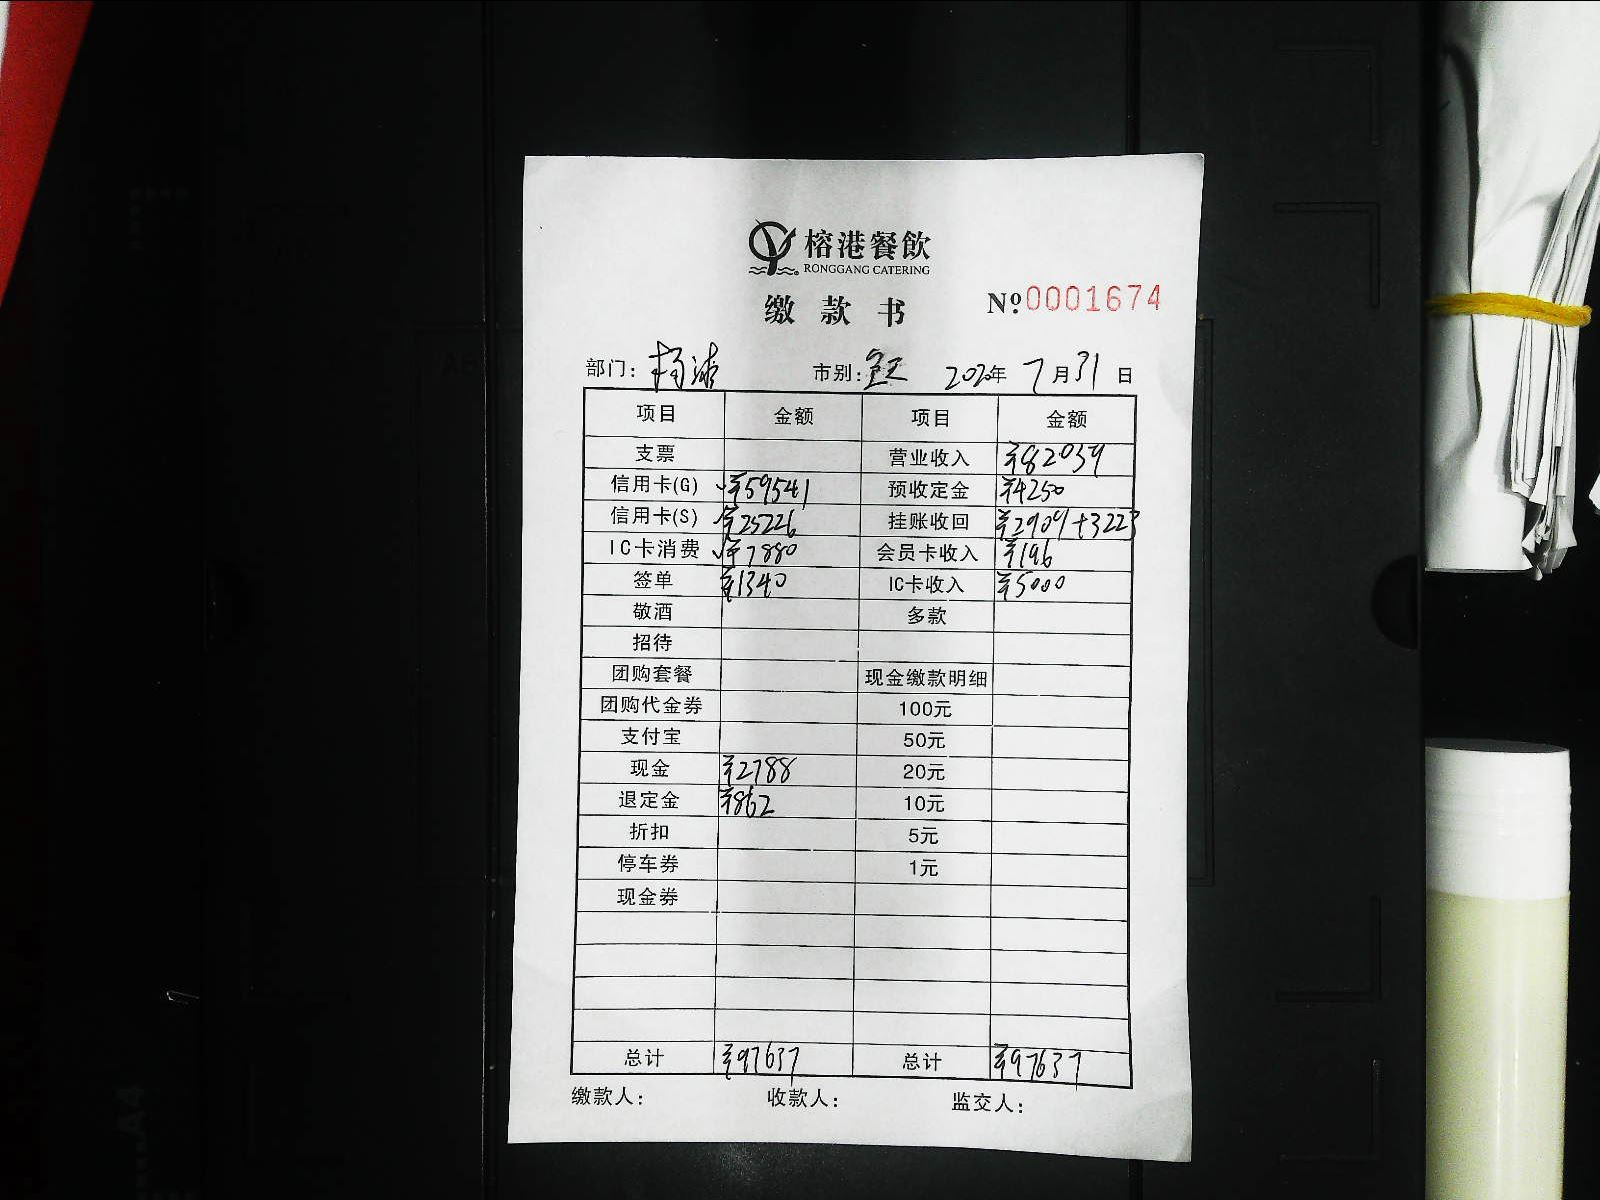 榕港餐飲
RONGGANG CATERING
缴款书 №0001674
部门: 市别:全天 2020年 7月31日
项目 金额 项目 金额
支票 营业收入 ¥82039
信用卡(G) ✓¥59541 预收定金 ¥4250
信用卡(S) ✓¥25226 挂账收回 ¥2909+3223
IC卡消费 ✓¥7880 会员卡收入 ¥196
签单 ¥1340 IC卡收入 ¥5000
敬酒 多款
招待
团购套餐 现金缴款明细
团购代金券 100元
支付宝 50元
现金 ¥2788 20元
退定金 ¥862 10元
折扣 5元
停车券 1元
现金券
总计 ¥97637 总计 ¥97637
缴款人: 收款人: 监交人: